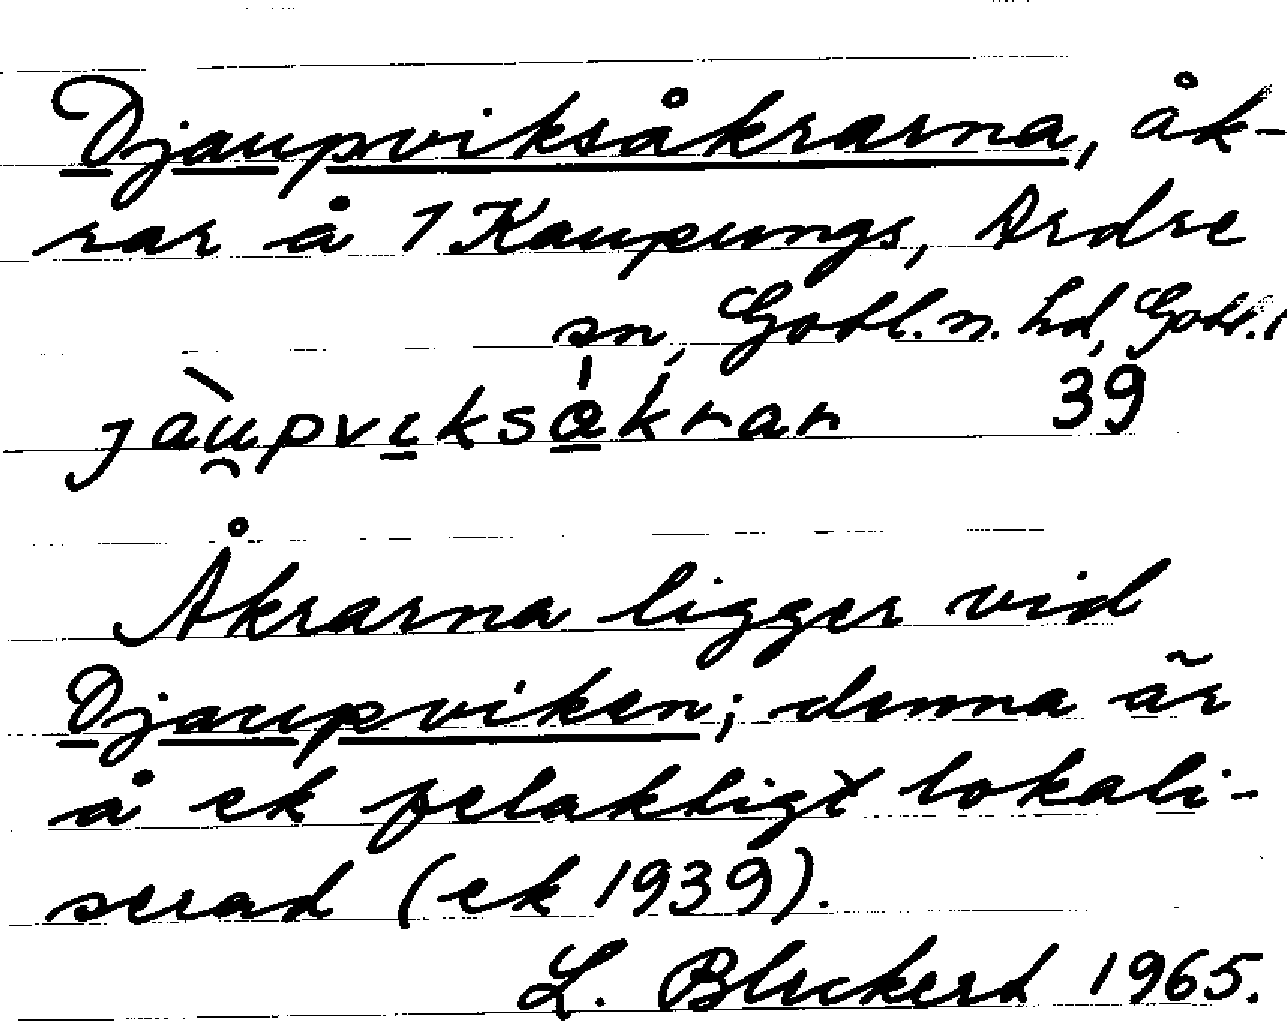 Djaupviksåkrarna, åk-
rar å 1 Kaupungs, Ardre
sn, Gotl. n. hd, Gotl. l
jàu̯pvi̲ksa̲̍krar 39
Åkrarna ligger vid
Djaupviken; denna är
å ek felaktigt lokali-
serad (ek 1939).
L. Bluckert 1965.